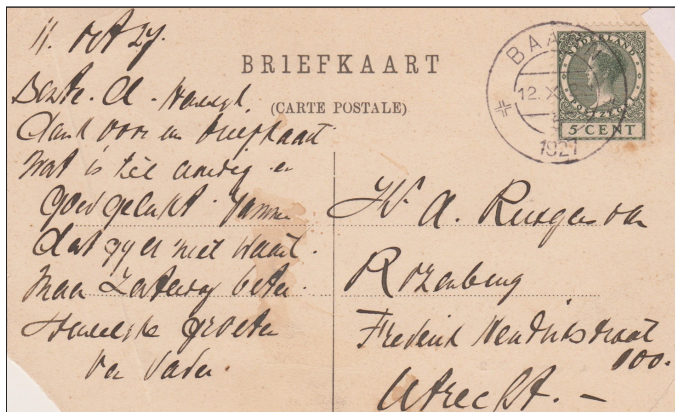 11. Oct 27.
BRIEFKAART
(CARTE POSTALE)
BAARN
12.X
1927
NEDERLAND
5 CENT
Beste A.
dank voor uw briefkaart
wat is
goed gelukt. Jammer
dat gy er niet waart.
maar Zaterdag beter.
groeten
van Vader.
A. Rutgers van
Rozenburg
Frederik Hendrikstraat
100.
Utrecht. –